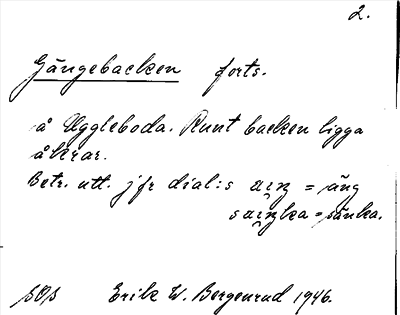 2.
Gängebacken forts.
å Uggleboda. Runt backen ligga
åkrar.
Betr. utt. jfr dial:s aıŋ = äng
saıŋka = sänka.
SOS Erik W. Bergenrud 1946.